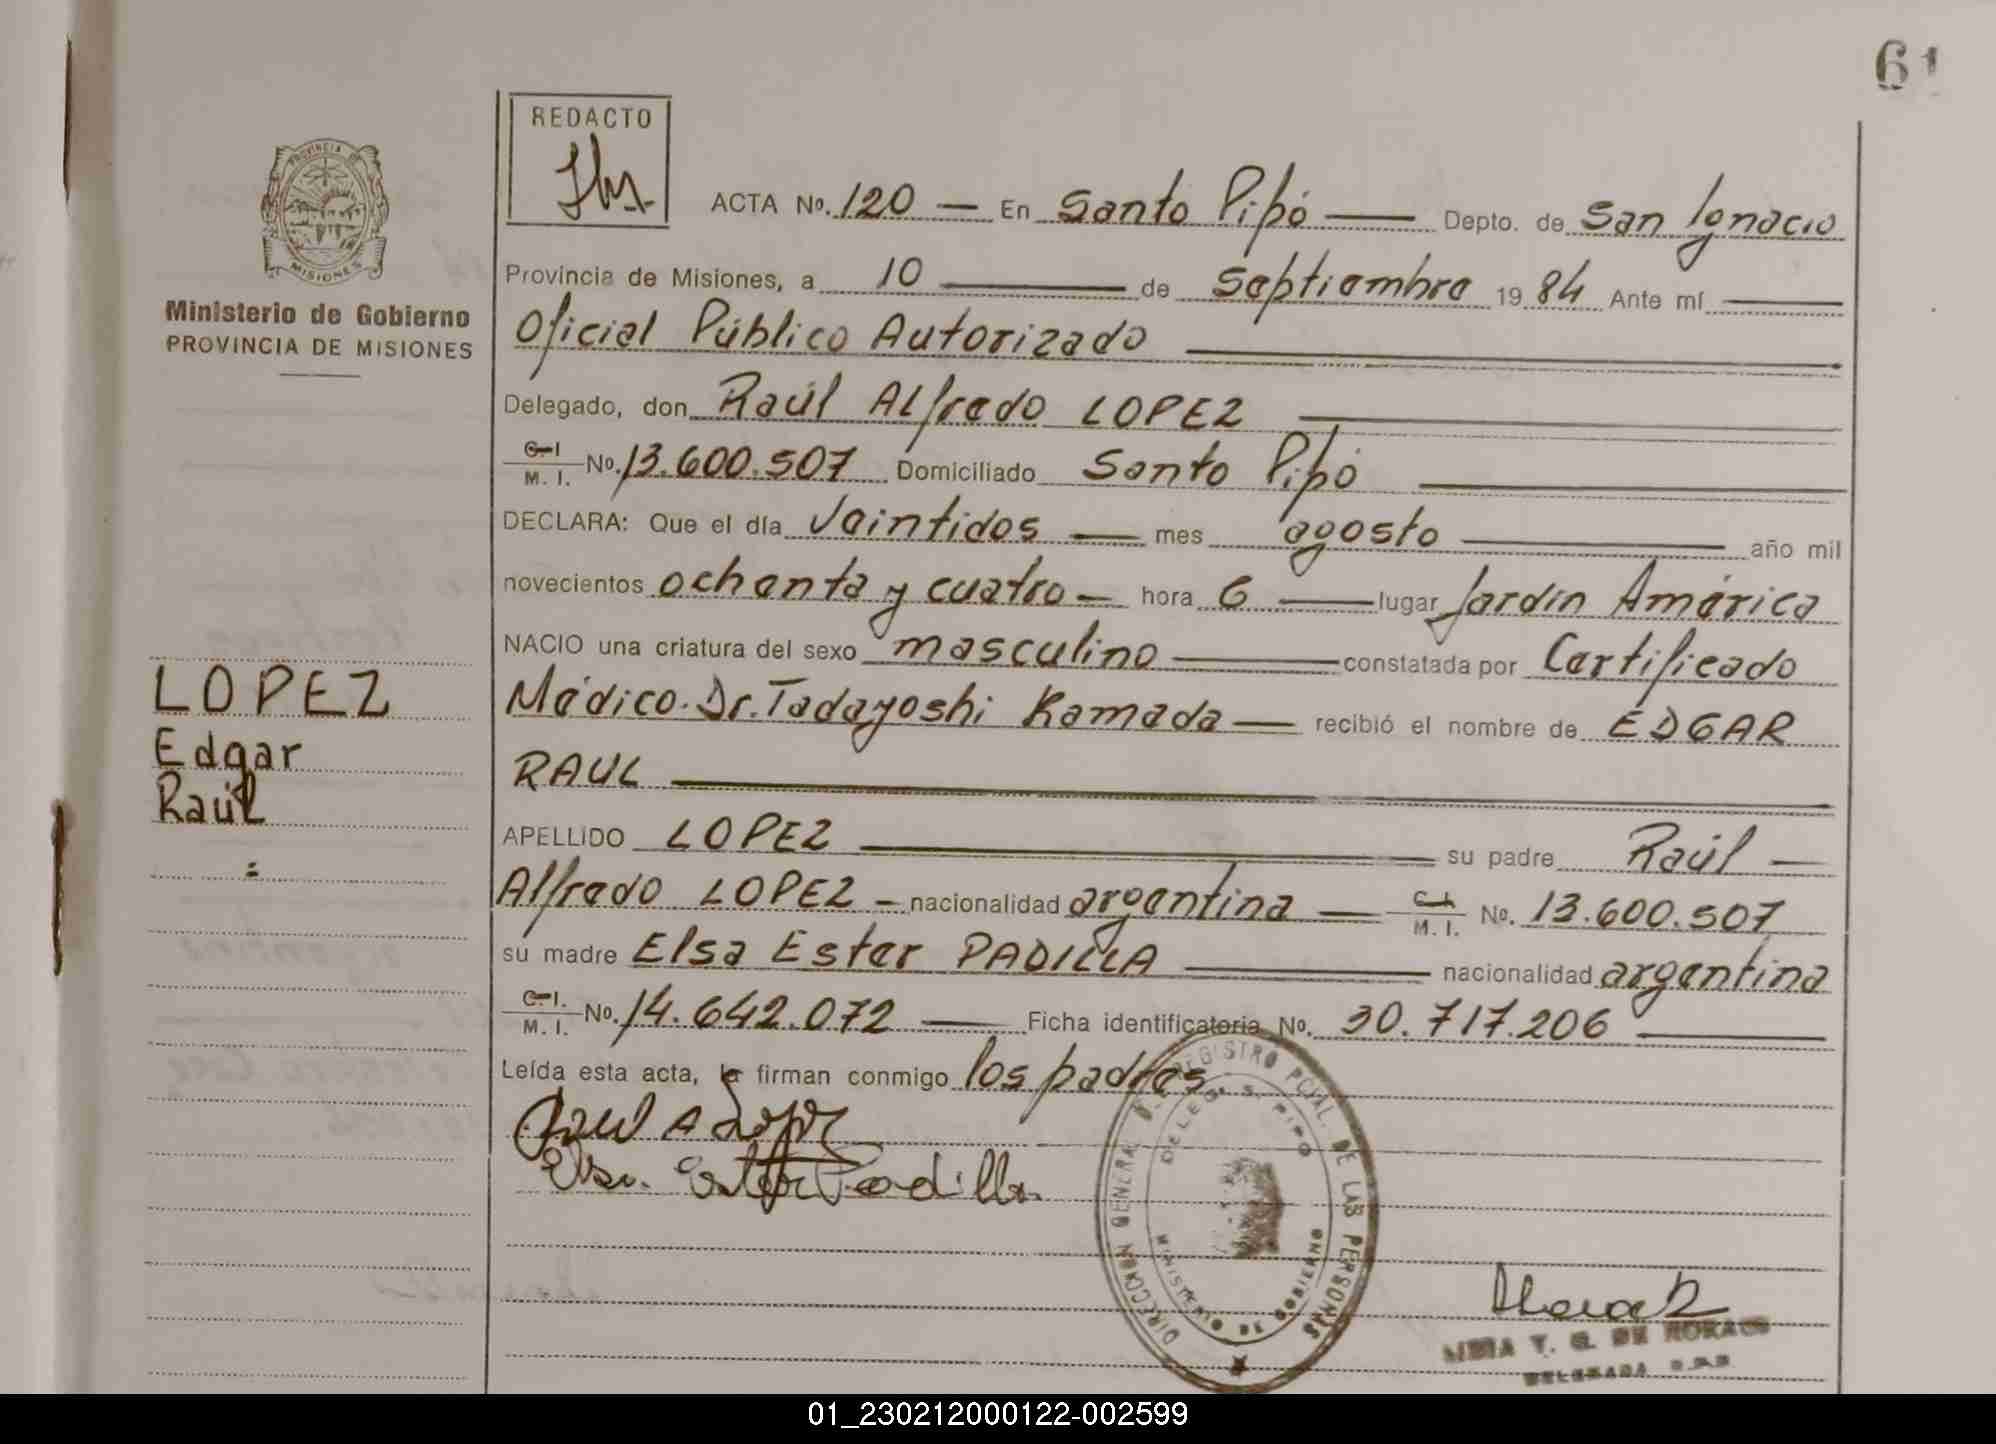 61
REDACTO
ACTA No. 120 — En Santo Pipó — Depto. de San Ignacio
Provincia de Misiones, a 10 — de septiembre 19 84 Ante mí —
Oficial Público Autorizado —
Delegado, don Raúl Alfredo LOPEZ —
C. I. / M. I. No. 13.600.507 Domiciliado Santo Pipó —
DECLARA: Que el día veintidos — mes agosto — año mil
novecientos ochenta y cuatro — hora 6 — lugar Jardín América
NACIO una criatura del sexo masculino — constatada por Certificado
Médico. Dr. Tadayoshi Kamada — recibió el nombre de EDGAR
RAUL —
APELLIDO LOPEZ — su padre Raúl —
Alfredo LOPEZ — nacionalidad argentina — C. I. / M. I. No. 13.600.507
su madre Elsa Ester PADILLA — nacionalidad argentina
C. I. / M. I. No. 14.642.072 — Ficha identificatoria No. 30.717.206 —
Leída esta acta, la firman conmigo los padres
Raul A Lopez
Elsa Ester Padilla
PROVINCIA DE
MISIONES
Ministerio de Gobierno
PROVINCIA DE MISIONES
LOPEZ
Edgar
Raúl
DIRECCION GENERAL DEL REGISTRO PCIAL. DE LAS PERSONAS
DELEG. S. PIPO
MINISTERIO DE GOBIERNO
Y. G. DE
DELEGADA
01_230212000122-002599